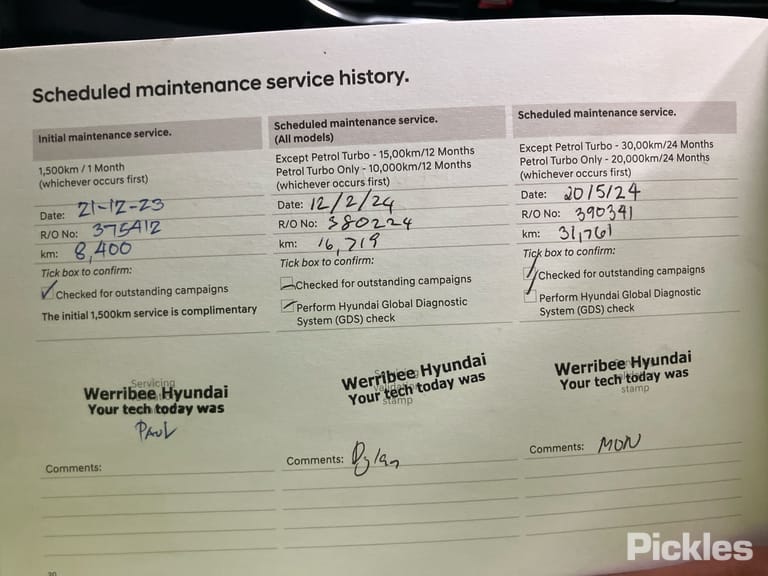 Scheduled maintenance service history.
Initial maintenance service.
1,500km / 1 Month
(whichever occurs first)
Date: 21-12-23
R/O No: 375412
km: 8,400
Tick box to confirm:
Checked for outstanding campaigns
The initial 1,500km service is complimentary
Servicing
Werribee Hyundai
Your tech today was
PAUL
Comments:
Scheduled maintenance service.
(All models)
Except Petrol Turbo - 15,00km/12 Months
Petrol Turbo Only - 10,000km/12 Months
(whichever occurs first)
Date: 12/2/24
R/O No: 380224
km: 16,719
Tick box to confirm:
Checked for outstanding campaigns
Perform Hyundai Global Diagnostic
System (GDS) check
Werribee Hyundai
Your tech today was
stamp
Comments: Dylan
Scheduled maintenance service.
Except Petrol Turbo - 30,00km/24 Months
Petrol Turbo Only - 20,000km/24 Months
(whichever occurs first)
Date: 20/5/24
R/O No: 390341
km: 31,761
Tick box to confirm:
Checked for outstanding campaigns
Perform Hyundai Global Diagnostic
System (GDS) check
Werribee Hyundai
Your tech today was
stamp
Comments: MON
Pickles